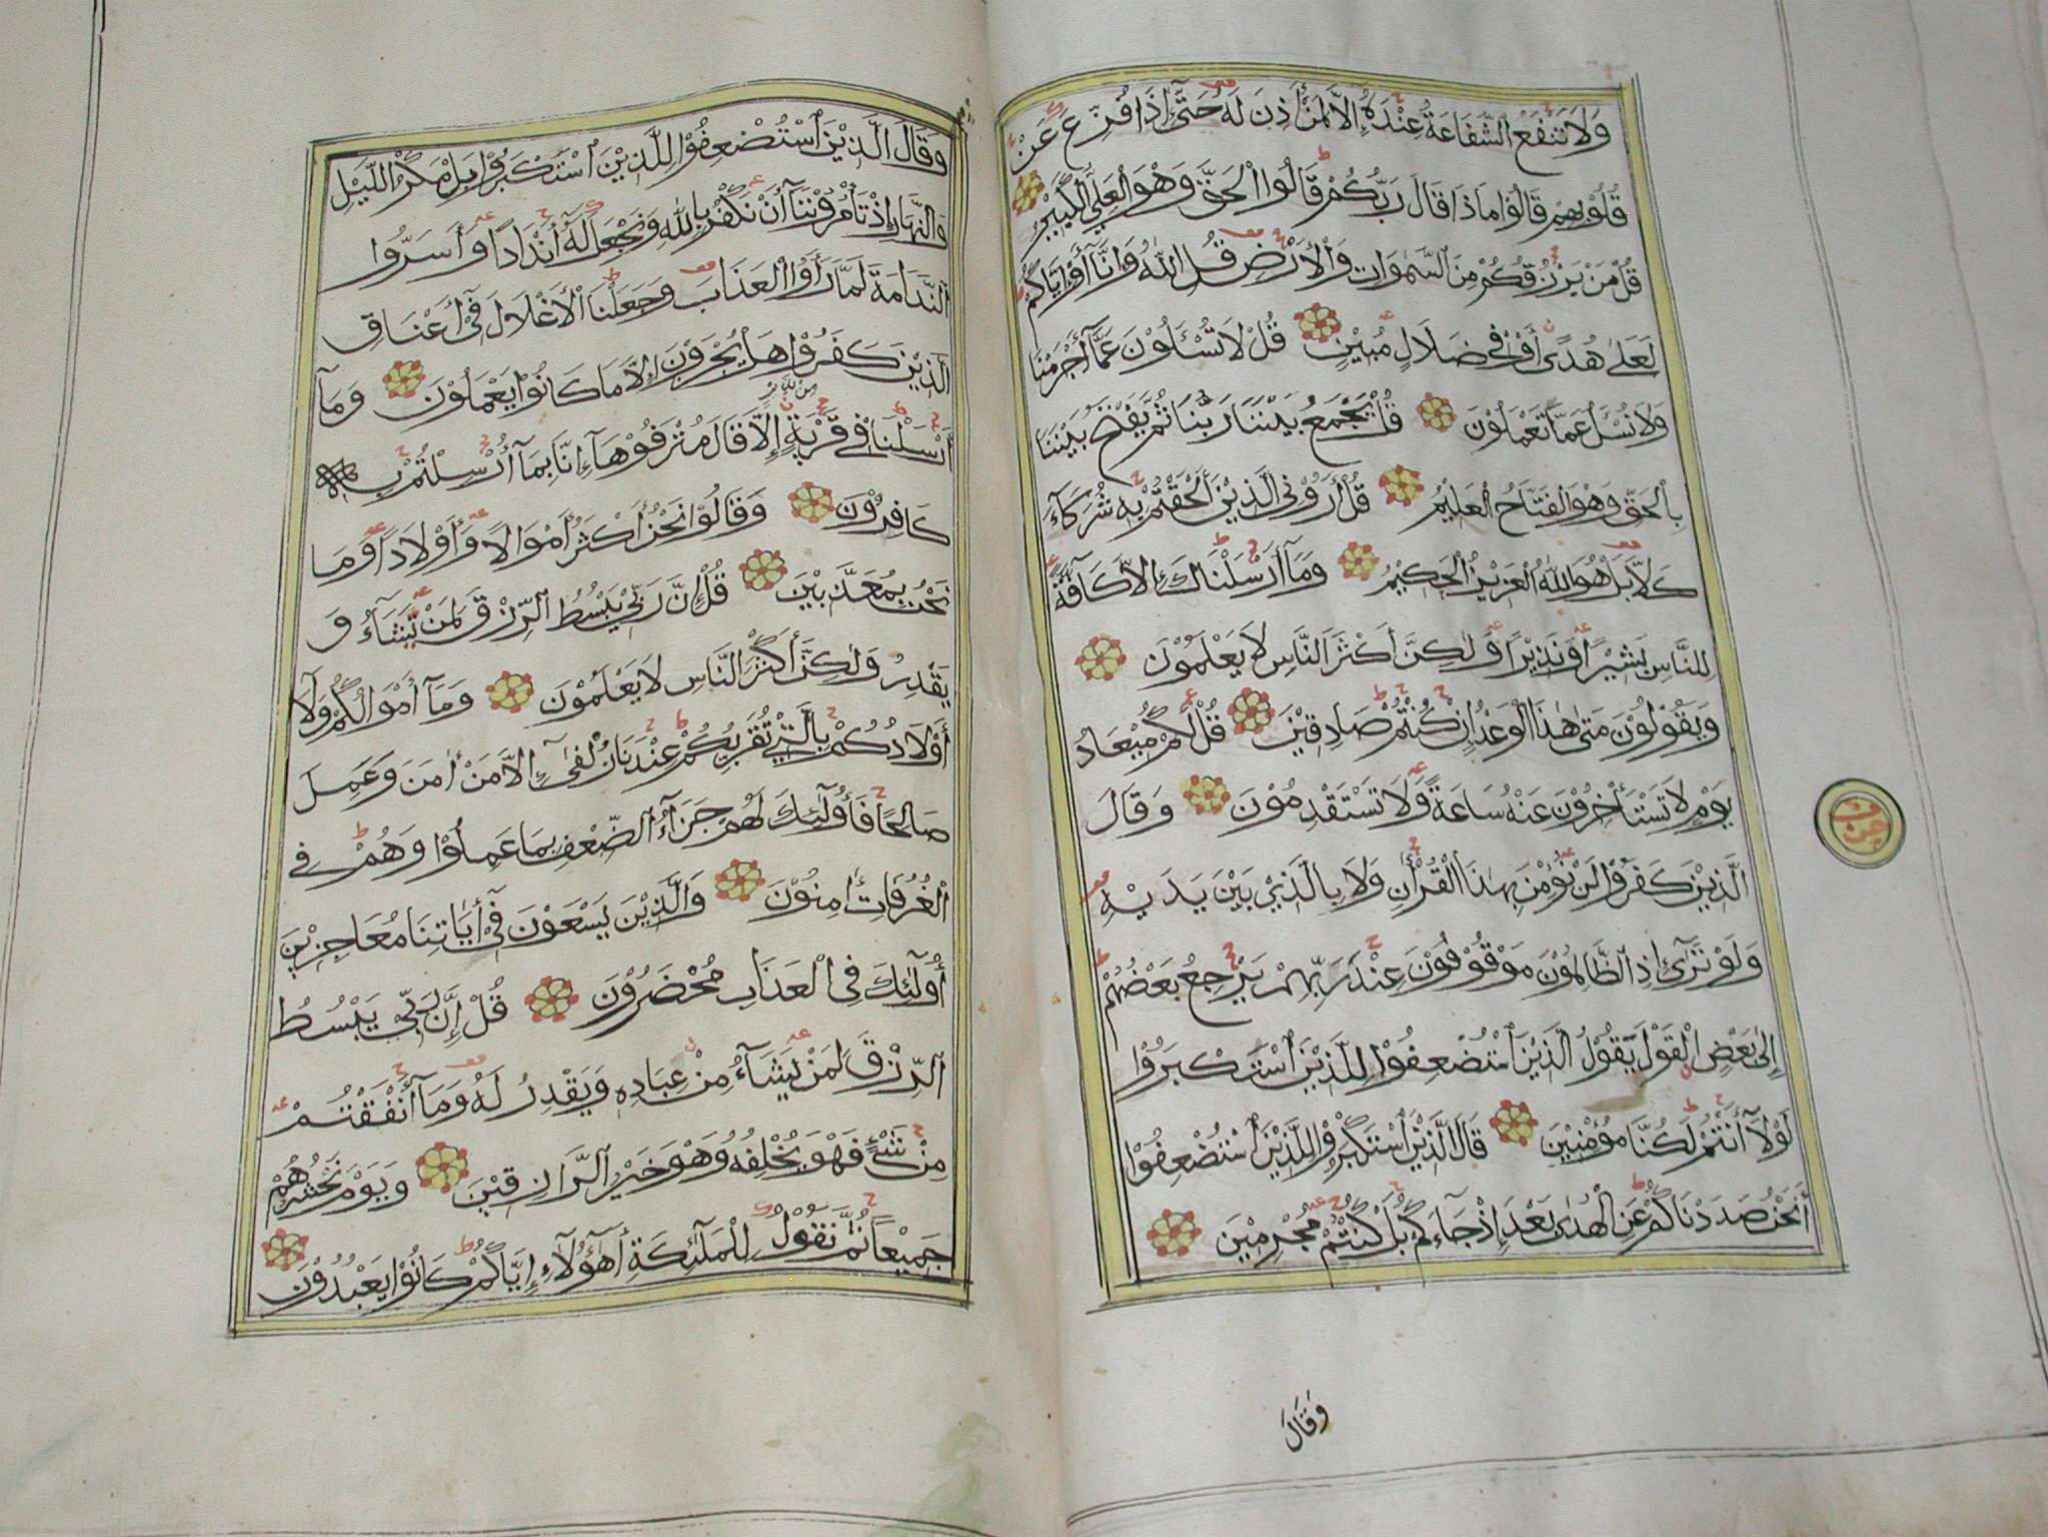 وَلَا تَنْفَعُ الشَّفَاعَةُ عِنْدَهُ إِلَّا لِمَنْ أَذِنَ لَهُ حَتَّى إِذَا فُزِّعَ عَنْ
قُلُوْبِهِمْ قَالُوْا مَاذَا قَالَ رَبُّكُمْ قَالُوا الْحَقَّ وَهْوَ الْعَلِيُّ الْكَبِيْرُ
قُلْ مَنْ يَرْزُقُكُمْ مِنَ السَّمٰوَاتِ وَالْأَرْضِ قُلِ اللّٰهُ وَإِنَّا أَوْ إِيَّاكُمْ
لَعَلٰى هُدًى أَوْ فِي ضَلَالٍ مُبِيْنٍ قُلْ لَا تُسْئَلُوْنَ عَمَّا أَجْرَمْنَا
وَلَا نُسْئَلُ عَمَّا تَعْمَلُوْنَ قُلْ يَجْمَعُ بَيْنَنَا رَبُّنَا ثُمَّ يَفْتَحُ بَيْنَنَا
بِالْحَقِّ وَهْوَ الْفَتَّاحُ الْعَلِيْمُ قُلْ أَرُوْنِيَ الَّذِيْنَ أَلْحَقْتُمْ بِهِ شُرَكَآءَ
كَلَّا بَلْ هُوَ اللّٰهُ الْعَزِيْزُ الْحَكِيْمُ وَمَآ أَرْسَلْنَاكَ إِلَّا كَآفَّةً
لِلنَّاسِ بَشِيْرًا وَنَذِيْرًا وَلٰكِنَّ أَكْثَرَ النَّاسِ لَا يَعْلَمُوْنَ
وَيَقُوْلُوْنَ مَتٰى هٰذَا الْوَعْدُ إِنْ كُنْتُمْ صَادِقِيْنَ قُلْ لَكُمْ مِيْعَادُ
يَوْمٍ لَا تَسْتَأْخِرُوْنَ عَنْهُ سَاعَةً وَلَا تَسْتَقْدِمُوْنَ وَقَالَ
الَّذِيْنَ كَفَرُوْا لَنْ نُؤْمِنَ بِهٰذَا الْقُرْأٰنِ وَلَا بِالَّذِيْ بَيْنَ يَدَيْهِ
وَلَوْ تَرٰٓى إِذِ الظَّالِمُوْنَ مَوْقُوْفُوْنَ عِنْدَ رَبِّهِمْ يَرْجِعُ بَعْضُهُمْ
إِلٰى بَعْضٍ الْقَوْلَ يَقُوْلُ الَّذِيْنَ اسْتُضْعِفُوْا لِلَّذِيْنَ اسْتَكْبَرُوْا
لَوْلَآ أَنْتُمْ لَكُنَّا مُؤْمِنِيْنَ قَالَ الَّذِيْنَ اسْتَكْبَرُوْا لِلَّذِيْنَ اسْتُضْعِفُوْا
أَنَحْنُ صَدَدْنَاكُمْ عَنِ الْهُدٰى بَعْدَ إِذْ جَآءَكُمْ بَلْ كُنْتُمْ مُجْرِمِيْنَ
وَقَالَ
وَقَالَ الَّذِيْنَ اسْتُضْعِفُوْا لِلَّذِيْنَ اسْتَكْبَرُوْا بَلْ مَكْرُ اللَّيْلِ
وَالنَّهَارِ إِذْ تَأْمُرُوْنَنَآ أَنْ نَكْفُرَ بِاللّٰهِ وَنَجْعَلَ لَهُ أَنْدَادًا وَأَسَرُّوا
النَّدَامَةَ لَمَّا رَأَوُا الْعَذَابَ وَجَعَلْنَا الْأَغْلَالَ فِيْٓ أَعْنَاقِ
الَّذِيْنَ كَفَرُوْا هَلْ يُجْزَوْنَ إِلَّا مَا كَانُوْا يَعْمَلُوْنَ وَمَآ
أَرْسَلْنَا فِي قَرْيَةٍ مِنْ نَذِيْرٍ إِلَّا قَالَ مُتْرَفُوْهَآ إِنَّا بِمَآ أُرْسِلْتُمْ بِهِ
كَافِرُوْنَ وَقَالُوْا نَحْنُ أَكْثَرُ أَمْوَالًا وَأَوْلَادًا وَمَا
نَحْنُ بِمُعَذَّبِيْنَ قُلْ إِنَّ رَبِّيْ يَبْسُطُ الرِّزْقَ لِمَنْ يَشَآءُ وَ
يَقْدِرُ وَلٰكِنَّ أَكْثَرَ النَّاسِ لَا يَعْلَمُوْنَ وَمَآ أَمْوَالُكُمْ وَلَآ
أَوْلَادُكُمْ بِالَّتِيْ تُقَرِّبُكُمْ عِنْدَنَا زُلْفٰىٓ إِلَّا مَنْ أٰمَنَ وَعَمِلَ
صَالِحًا فَأُولٰٓئِكَ لَهُمْ جَزَآءُ الضِّعْفِ بِمَا عَمِلُوْا وَهُمْ فِي
الْغُرُفَاتِ أٰمِنُوْنَ وَالَّذِيْنَ يَسْعَوْنَ فِيْٓ أٰيَاتِنَا مُعَاجِزِيْنَ
أُولٰٓئِكَ فِي الْعَذَابِ مُحْضَرُوْنَ قُلْ إِنَّ رَبِّيْ يَبْسُطُ
الرِّزْقَ لِمَنْ يَشَآءُ مِنْ عِبَادِهِ وَيَقْدِرُ لَهُ وَمَآ أَنْفَقْتُمْ
مِنْ شَيْءٍ فَهْوَ يُخْلِفُهُ وَهْوَ خَيْرُ الرَّازِقِيْنَ وَيَوْمَ نَحْشُرُهُمْ
جَمِيْعًا ثُمَّ نَقُوْلُ لِلْمَلٰٓئِكَةِ أَهٰٓؤُلَآءِ إِيَّاكُمْ كَانُوْا يَعْبُدُوْنَ